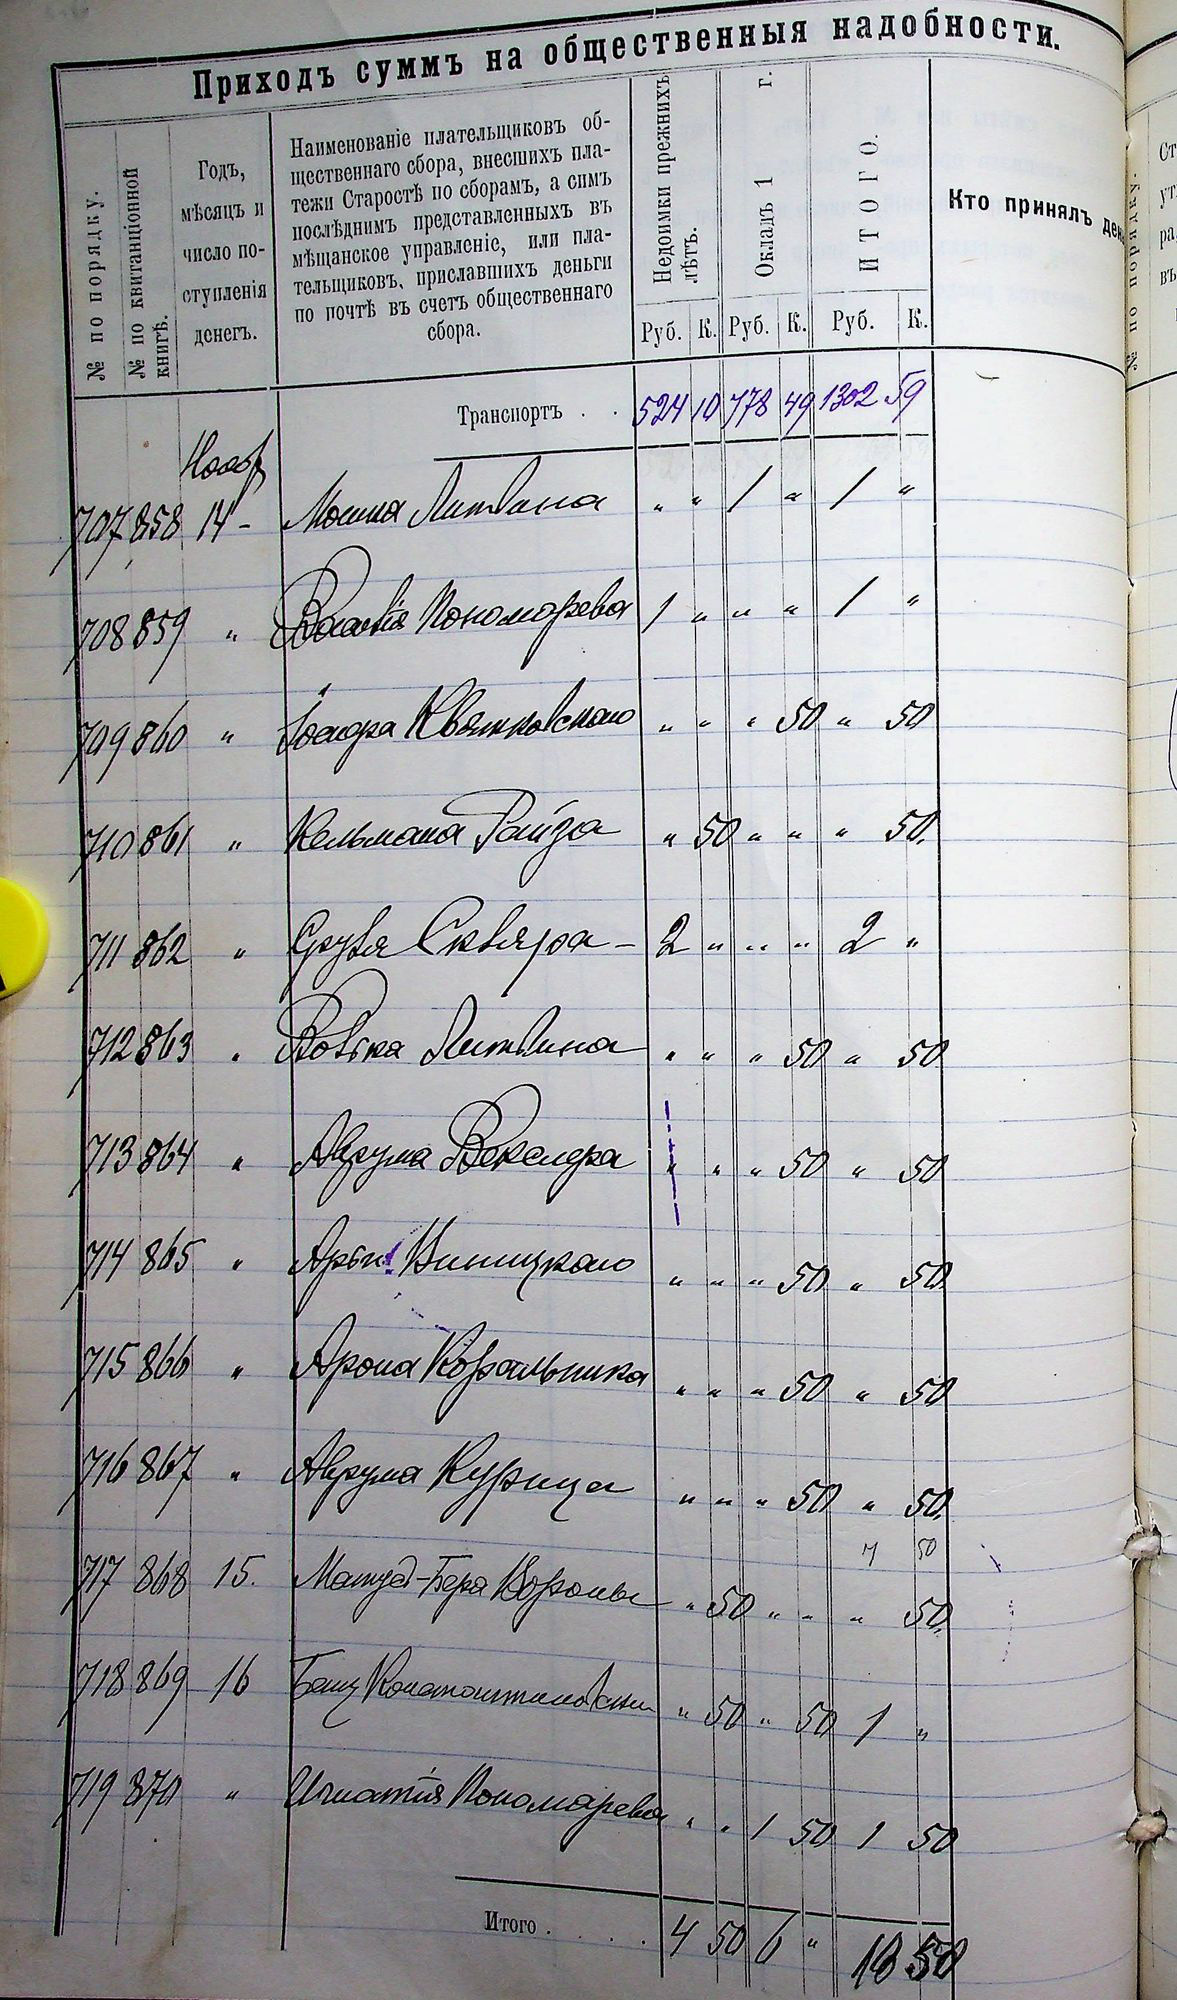 Приходъ суммъ на общественныя надобности.
№ по порядку.
№ по квитанціонной
книгѣ.
Годъ,
мѣсяцъ и
число по-
ступленія
денегъ.
Наименованіе плательщиковъ об-
щественнаго сбора, внесшихъ пла-
тежи Старостѣ по сборамъ, а симъ
послѣднимъ представленныхъ въ
мѣщанское управленіе, или пла-
тельщиковъ, приславшихъ деньги
по почтѣ въ счетъ общественнаго
сбора.
Недоимки прежнихъ
лѣтъ.
Окладъ 1 г.
ИТОГО.
Кто принялъ ден
Руб. К. Руб. К. Руб. К.
Транспортъ . . 524 10 778 49 1302 59
Нояб
707 858 14 - Мошка Литвина " " 1 " 1 "
708 859 " Василія Пономарева 1 " " " 1 "
709 860 " Іосифа Квятковскаго " " " 50 " 50
710 861 " Кельмана Райза " 50 " " " 50.
711 862 " Сруля Скляра - 2 " " " 2 "
712 863 " Вовтка Литвина " " " 50 " 50
713 864 " Аврума Векслера " " " 50 " 50
714 865 " Арья Виницкаго " " " 50 " 50.
715 866 " Арона Ковальника " " " 50 " 50
716 867 " Аврума Курица " " " 50 " 50.
7 50
717 868 15. Бера " 50 " " " 50.
718 869 16 " 50 " 50 1 "
719 870 " Игнатія Пономарева " " 1 50 1 50
Итого . . . . 4 50 6 " 10 50
№ по порядку.